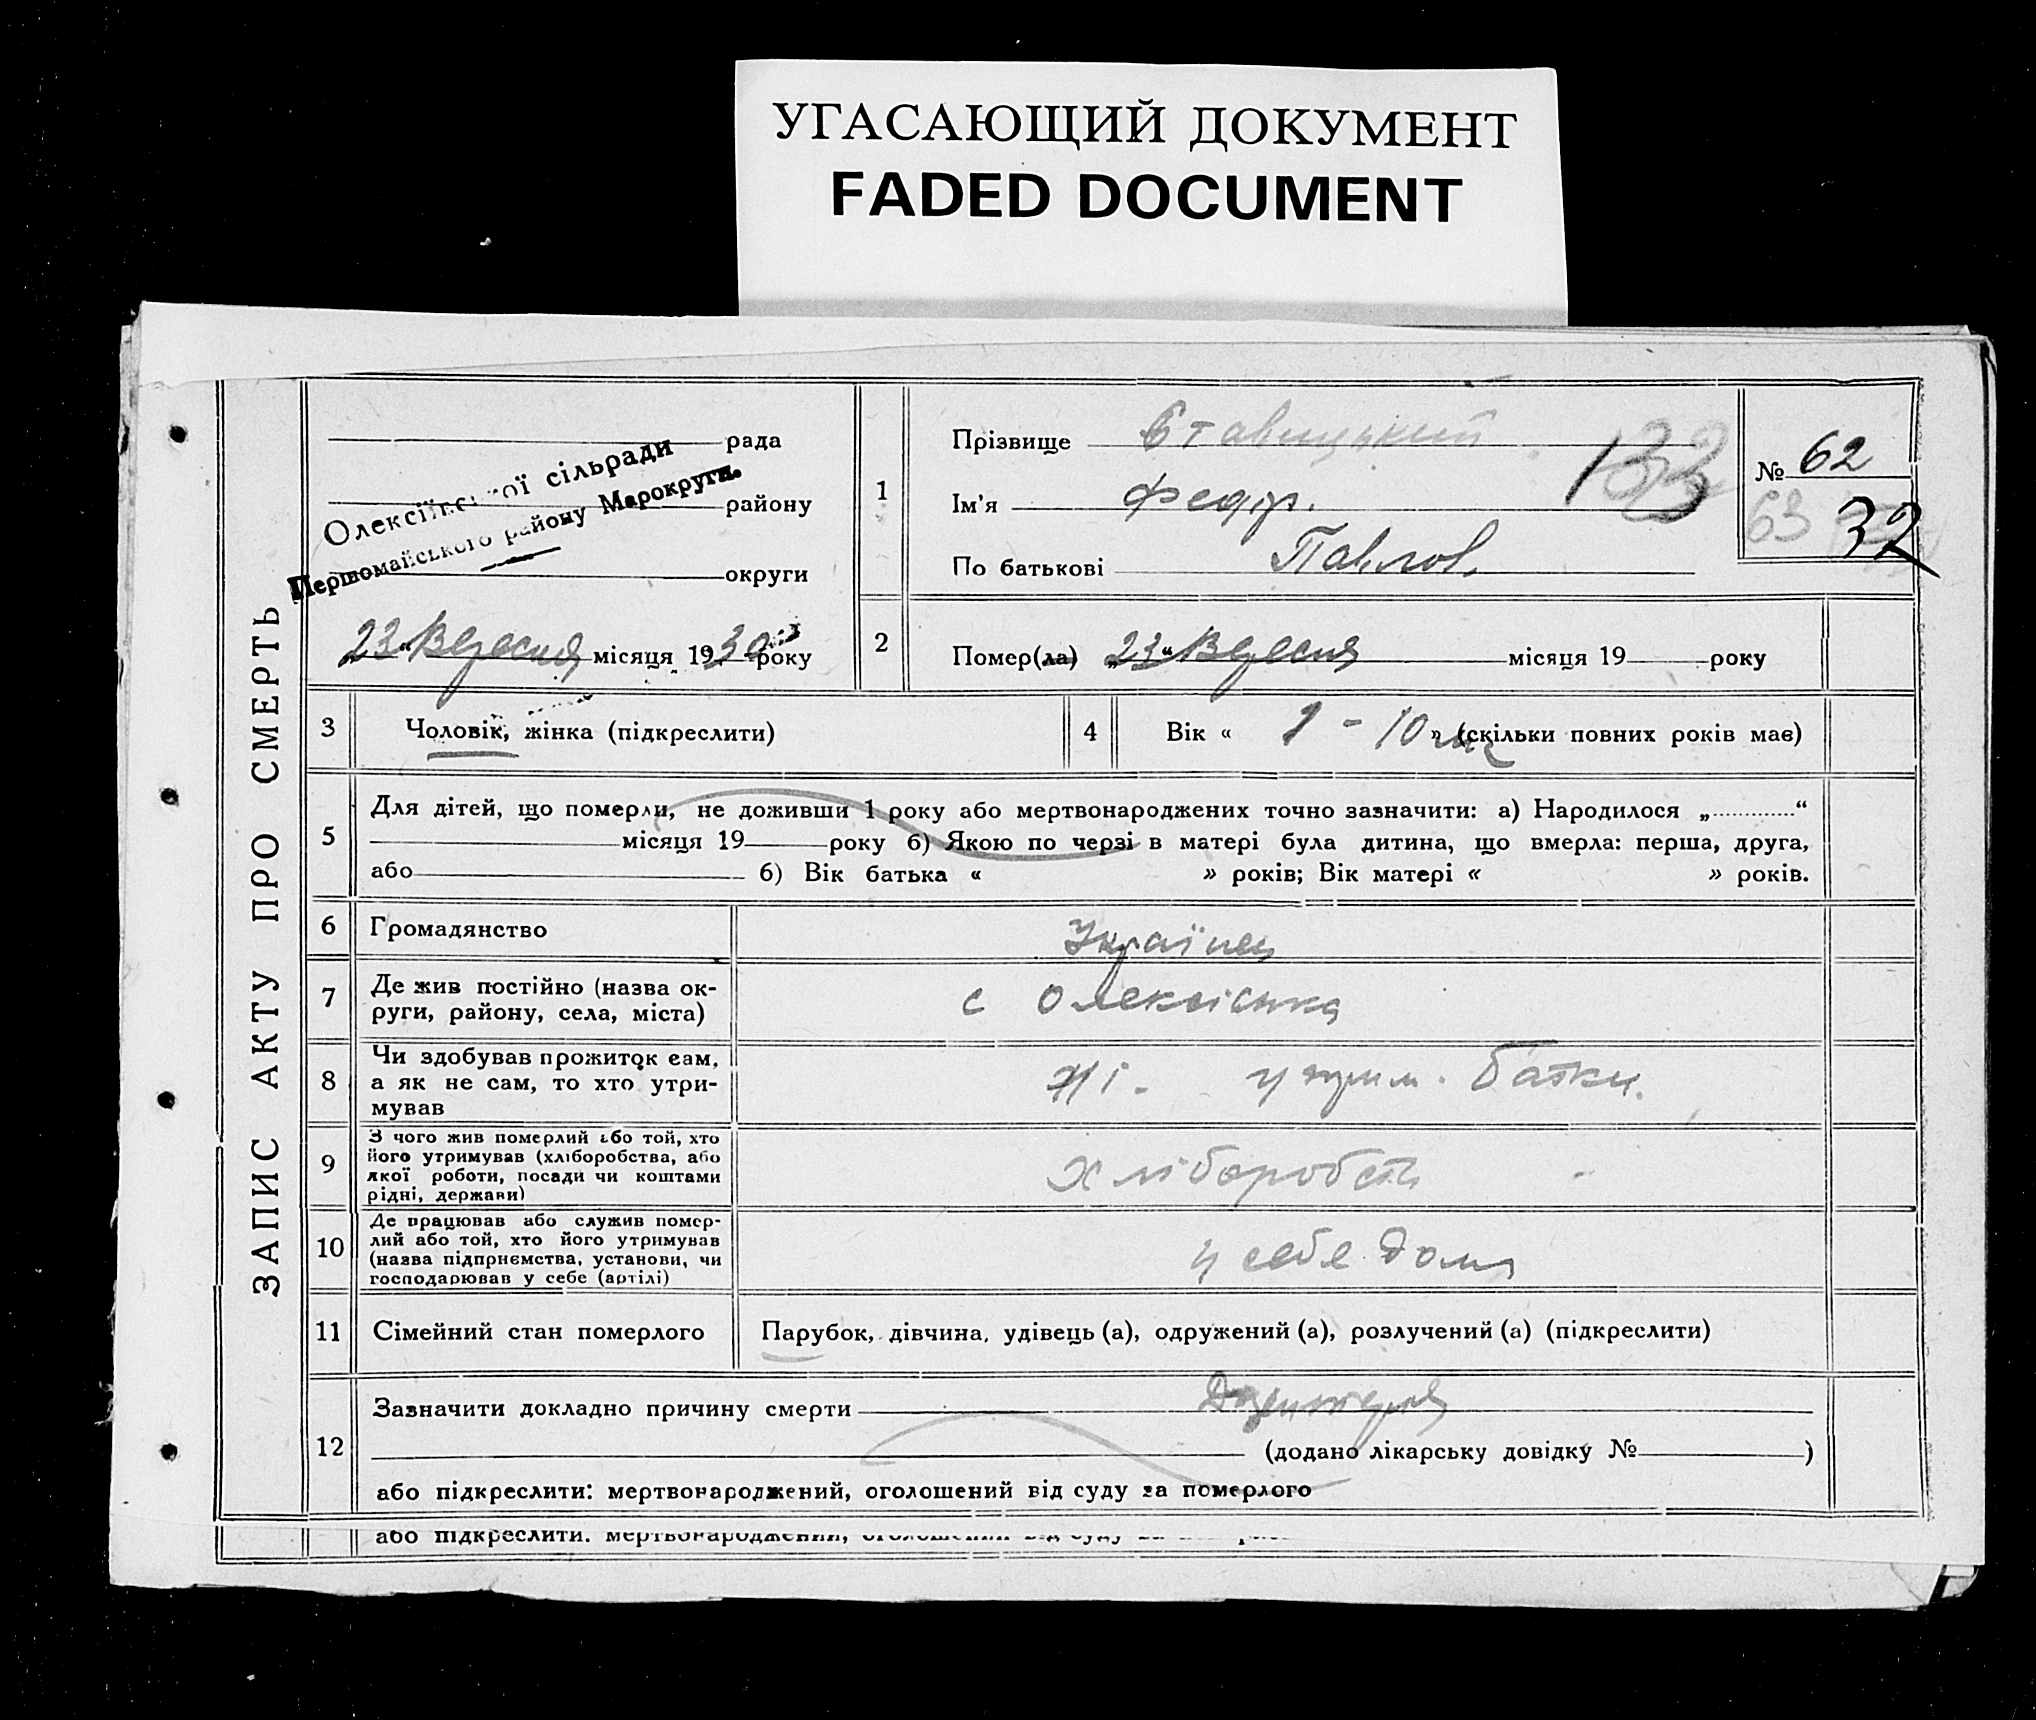 УГАСАЮЩИЙ ДОКУМЕНТ
FADED DOCUMENT
ЗАПИС АКТУ ПРО СМЕРТЬ
рада
району
округи
Олексіївської сільради
Первомайського району Марокруги.
23 „ Вересня місяця 1930 року
1
Прізвище Ставицький
Ім'я Федор.
По батькові Павлов.
133
№ 62
63
32
2
Помер(ла) „23“ Вересня місяця 19 року
3
Чоловік, жінка (підкреслити)
4
Вік « 1 - 10 мц » (скільки повних років має)
5
Для дітей, що померли, не доживши 1 року або мертвонароджених точно зазначити: а) Народилося „ “
місяця 19 року б) Якою по черзі в матері була дитина, що вмерла: перша, друга,
або б) Вік батька « » років; Вік матері « » років.
6
Громадянство
Українец
7
Де жив постійно (назва ок-
руги, району, села, міста)
с Олексіівка
8
Чи здобував прожиток сам,
а як не сам, то хто утри-
мував
Ні. утрим. Батки.
9
З чого жив померлий або той, хто
його утримував (хліборобства, або
якої роботи, посади чи коштами
рідні, держави)
Хліборобств
10
Де працював або служив помер-
лий або той, хто його утримував
(назва підприємства, установи, чи
господарював у себе (артілі)
у себе дома
11
Сімейний стан померлого
Парубок, дівчина, удівець (а), одружений (а), розлучений (а) (підкреслити)
12
Зазначити докладно причину смерти Дизентерія
(додано лікарську довідку № )
або підкреслити: мертвонароджений, оголошений від суду за померлого
або підкреслити: мертвонароджений,